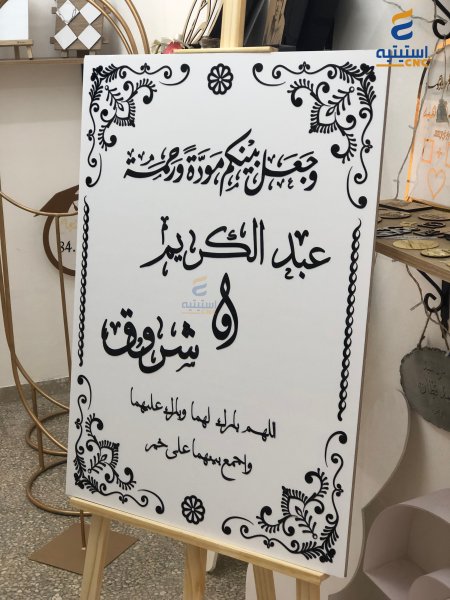 استيتيه
CNC
وجعل بينكم مودةً ورحمة
عبد الكريم
و
استيتيه
CNC
شروق
اللهم بارك لهما وبارك عليهما
واجمع بينهما على خير